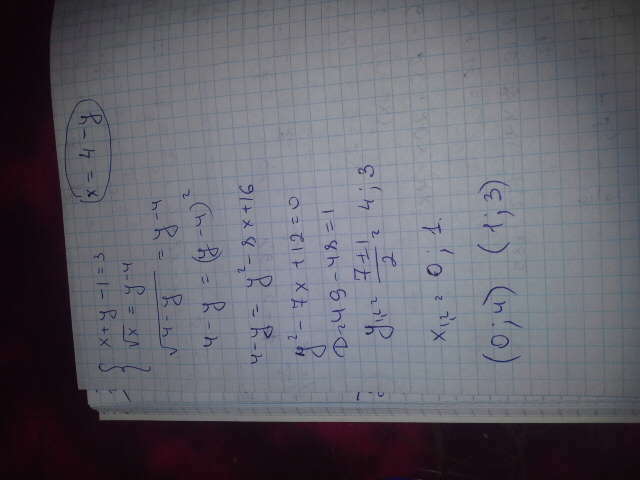 { x+y-1=3
√x = y-4
x = 4-y
√4-y = y-4
4-y = (y-4)²
4-y = y²-8x+16
y²-7x+12=0
D=49-48=1
y₁,₂= 7±1/2 = 4;3
x₁,₂= 0;1.
(0;4) (1;3)